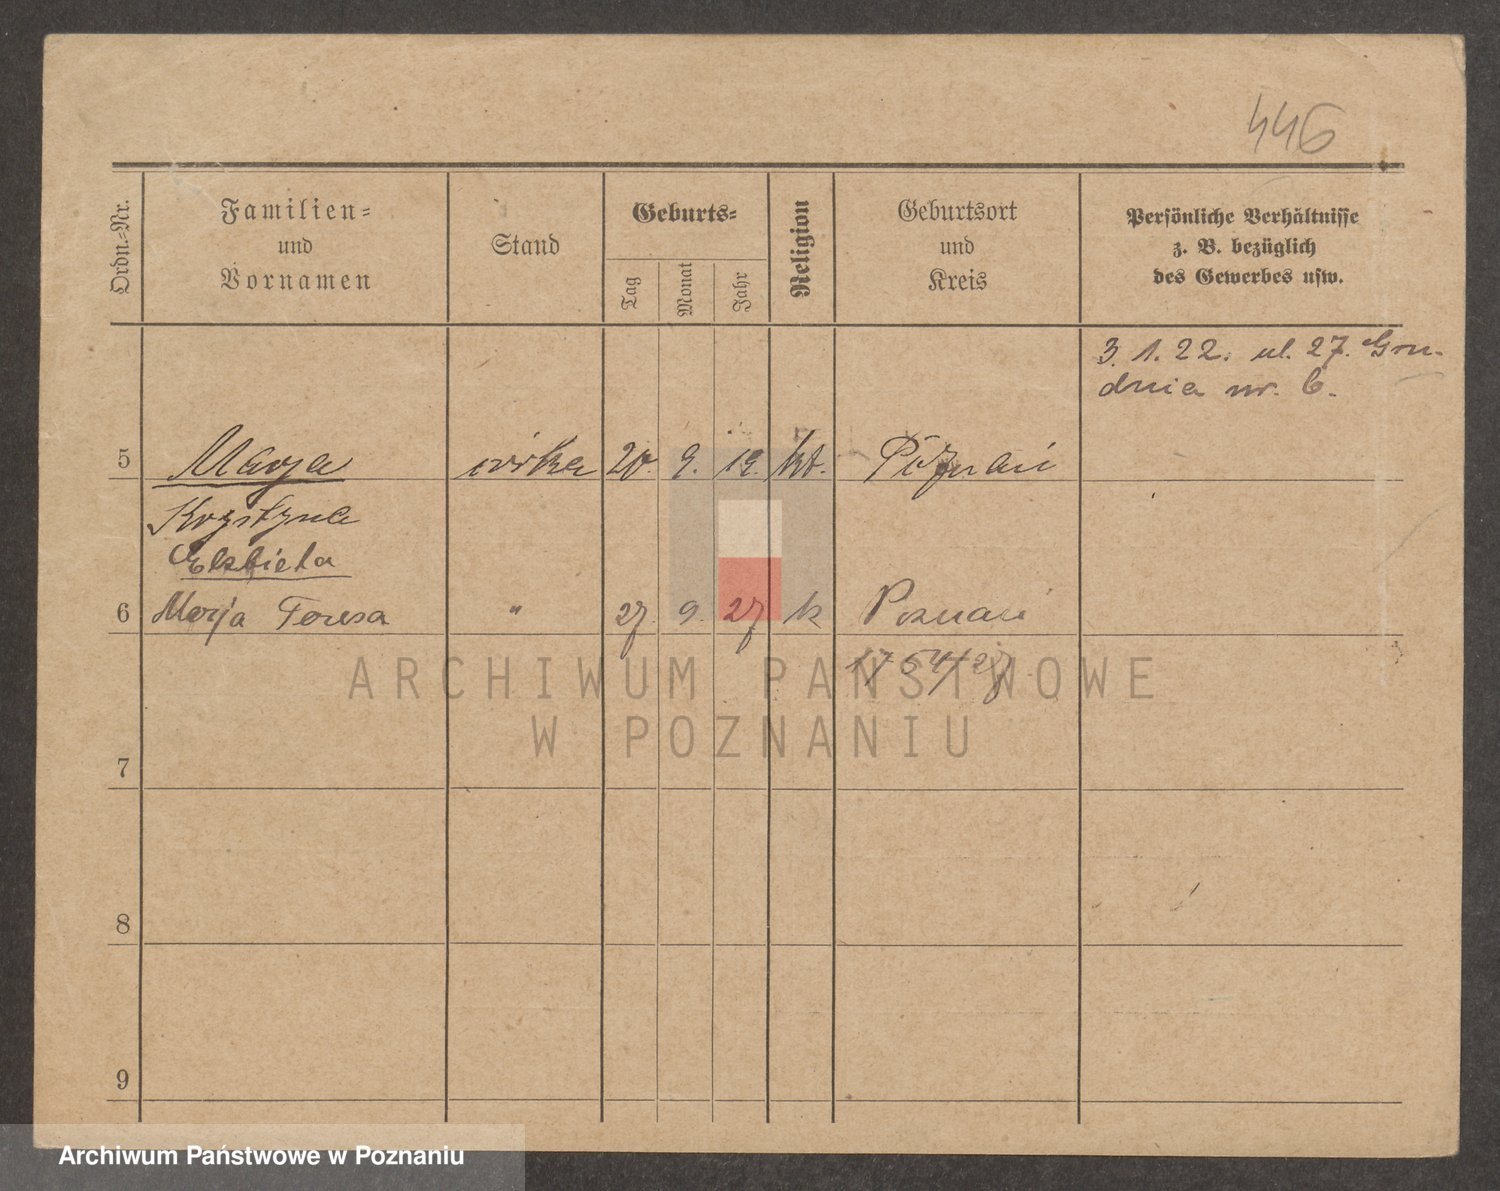 446
Ordn.-Nr.
Familien-
und
Vornamen
Stand
Geburts-
Tag
Monat
Jahr
Religion
Geburtsort
und
Kreis
Persönliche Verhältnisse
z. B. bezüglich
des Gewerbes usw.
3. 1. 22. ul. 27. Gru-
dnia nr. 6.
5 Marja córka 20. 9. 19. kt. Poznań
Krystyna
Elżbieta
6 Marja Teresa " 27. 9. 27 k Poznań
1754/27
ARCHIWUM PAŃSTWOWE
W POZNANIU
7
8
9
Archiwum Państwowe w Poznaniu